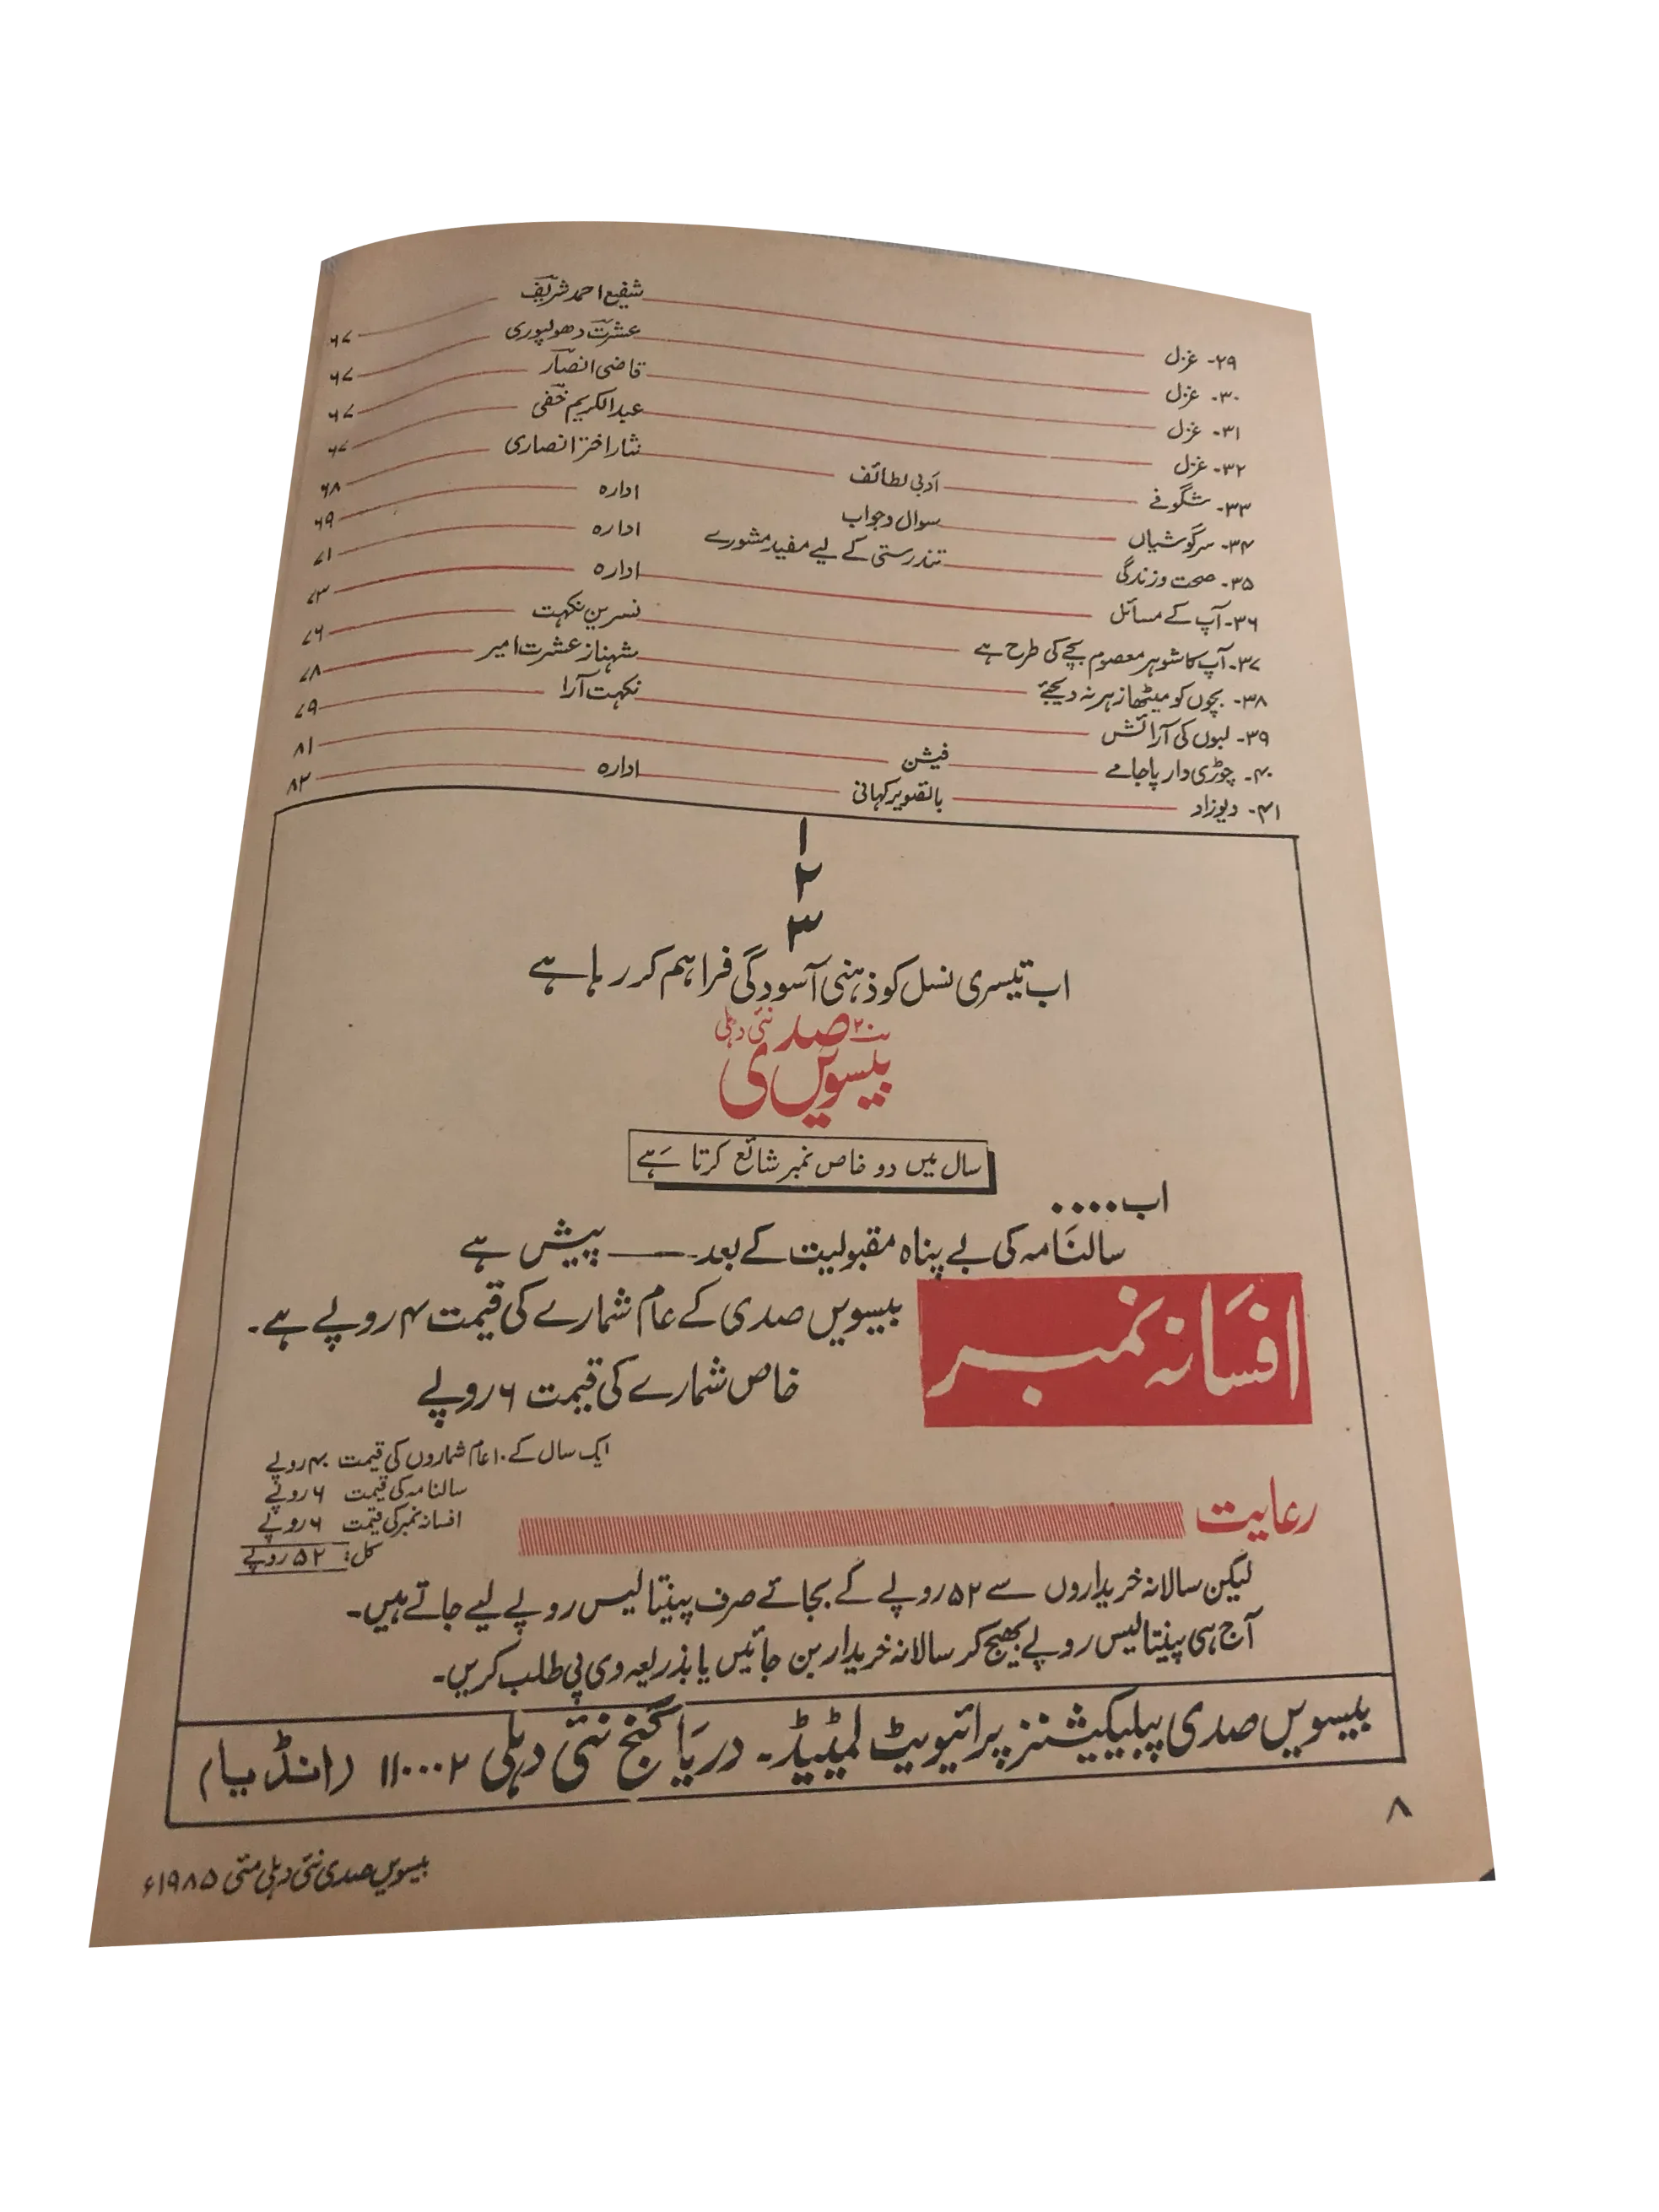 ۲۹۔ غزل شفیع احمد شریف ۶۷
۳۰۔ غزل عشرت دھولپوری ۶۷
۳۱۔ غزل قاضی انصار ۶۷
۳۲۔ غزل عبدالکریم خفی ۶۷
۳۳۔ شگوفے ادبی لطائف نثار اختر انصاری ۶۸
۳۴۔ سرگوشیاں سوال و جواب ادارہ ۶۹
۳۵۔ صحت و زندگی تندرستی کے لیے مفید مشورے ادارہ ۷۱
۳۶۔ آپ کے مسائل ادارہ ۷۳
۳۷۔ آپ کا شوہر معصوم بچے کی طرح ہے نسرین نکہت ۷۶
۳۸۔ بچوں کو میٹھا زہر نہ دیجئے شہناز عشرت امیر ۷۸
۳۹۔ لبوں کی آرائش نکہت آرا ۷۹
۴۰۔ چوڑی دار پاجامے فیشن ۸۱
۴۱۔ دیوزاد باتصویر کہانی ادارہ ۸۲
۱
۲
۳
اب تیسری نسل کو ذہنی آسودگی فراہم کر رہا ہے
بیسویں صدی ۲۰ نئی دہلی
سال میں دو خاص نمبر شائع کرتا ہے
اب ....
سالنامہ کی بے پناہ مقبولیت کے بعد —— پیش ہے
افسانہ نمبر
بیسویں صدی کے عام شمارے کی قیمت ۴ روپے ہے۔
خاص شمارے کی قیمت ۶ روپے
ایک سال کے ۱۰ عام شماروں کی قیمت ۴۰ روپے
سالنامہ کی قیمت ۶ روپے
افسانہ نمبر کی قیمت ۶ روپے
کل: ۵۲ روپے
رعایت
لیکن سالانہ خریداروں سے ۵۲ روپے کے بجائے صرف پینتالیس روپے لیے جاتے ہیں۔
آج ہی پینتالیس روپے بھیج کر سالانہ خریدار بن جائیں یا بذریعہ وی پی طلب کریں۔
بیسویں صدی پبلیکیشنز پرائیویٹ لمٹیڈ۔ دریا گنج نئی دہلی ۱۱۰۰۰۲ (انڈیا)
۸
بیسویں صدی نئی دہلی مئی ۱۹۸۵ء